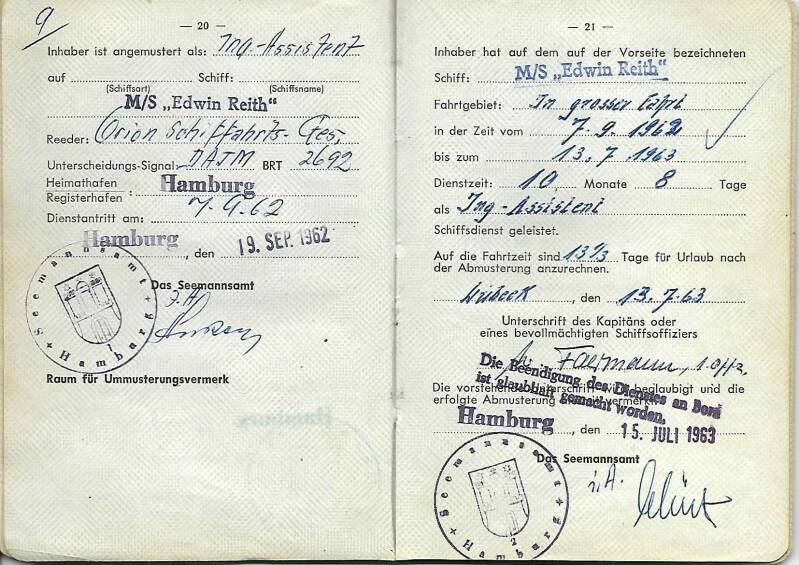 9
— 20 —
Inhaber ist angemustert als: Ing.-Assistent
auf Schiff:
(Schiffsart) (Schiffsname)
M/S „Edwin Reith"
Reeder: Orion Schiffahrts-Ges.
Unterscheidungs-Signal: DAJM BRT 2692
Heimathafen
Registerhafen : Hamburg
Dienstantritt am: 7.9.62
Hamburg, den 19. SEP. 1962
Das Seemannsamt
Seemannsamt
Hamburg
Raum für Ummusterungsvermerk
— 21 —
Inhaber hat auf dem auf der Vorseite bezeichneten
Schiff: M/S „Edwin Reith"
Fahrtgebiet: In grosser Fahrt
in der Zeit vom 7.9.1962
bis zum 13.7.1963
Dienstzeit: 10 Monate 8 Tage
als Ing-Assistent
Schiffsdienst geleistet.
Auf die Fahrtzeit sind 13 1/3 Tage für Urlaub nach
der Abmusterung anzurechnen.
, den 13.7.63
Unterschrift des Kapitäns oder
eines bevollmächtigten Schiffsoffiziers
Die Beendigung des Dienstes an Bord
ist glaubhaft gemacht worden.
Die vorstehende Unterschrift wird beglaubigt und die
erfolgte Abmusterung vermerkt
Hamburg, den 15. JULI 1963
Das Seemannsamt
i.A.
Seemannsamt
Hamburg
2